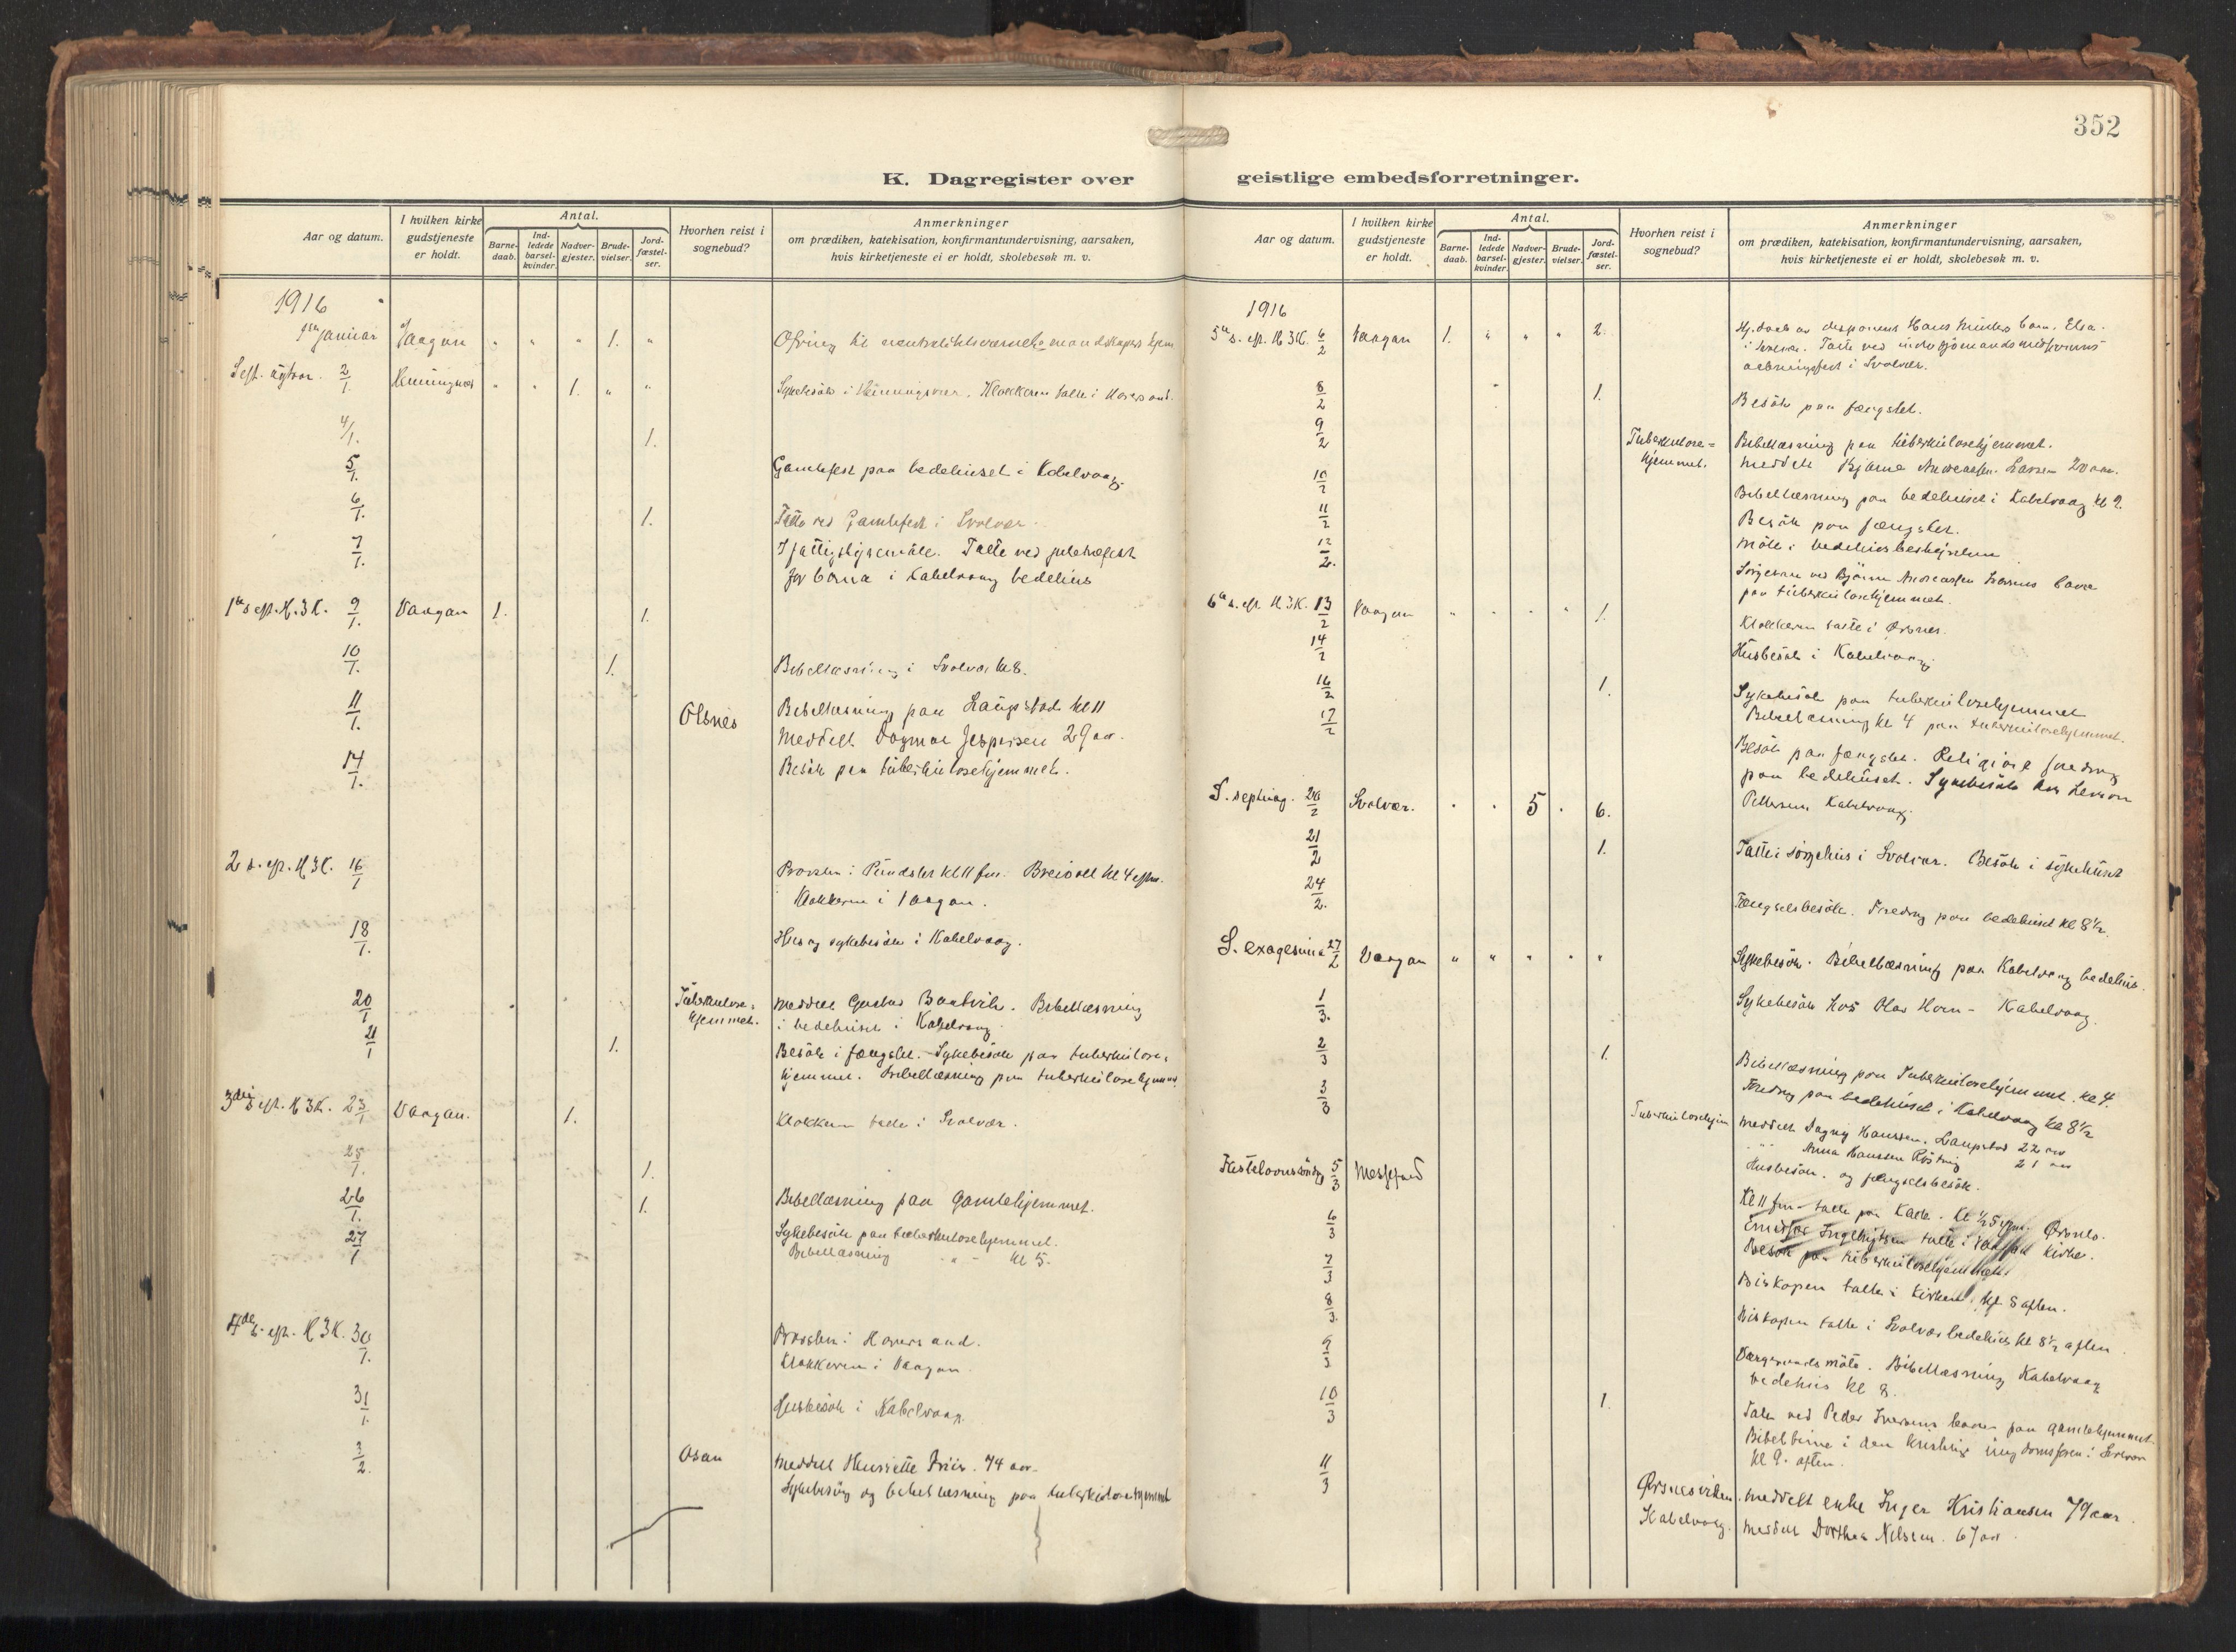 352
K. Dagregister over geistlige embedsforretninger.
Aar og datum.
I hvilken kirke gudstjeneste er holdt.
Antal.
Barne-daab.
Ind-ledede barsel-kvinder.
Nadver-gjester.
Brude-vielser.
Jord-fæstel-ser.
Hvorhen reist i sognebud?
Anmerkninger
om prædiken, katekisation, konfirmantundervisning, aarsaken,
hvis kirketjeneste ei er holdt, skolebesøk m. v.
1916
januar Vaagan " " " 1. " Ofring til
2/1 Henningsvær " " 1. " " Sykebesök i Henningsvær. Klokkeren talte i
4/1. 1.
5/1. Gamlefest paa bedehuset i Kabelvaag.
6/1. 1. Talte ved Gamlefest i Svolvær.
7/1. Talte ved juletræfest
for barna i Kabelvaag bedehus
1ste s. eft. H.3K. 9/1. Vaagan 1. 1.
10/1. 1. Bibellæsning i Svolvær kl 8.
11/1. Olsnes Bibellæsning paa Laupstad kl 11
Meddelt Dagmar Jespersen 29 aar.
14/1. Besök paa tuberkulosehjemmet.
2 s. eft. H3K. 16/1 Provsten i kl 11 fm. kl 4 eftm.
Klokkeren i Vaagan.
18/1. Hus og sykebesök i Kabelvaag.
20/1 Tuberkulose-
hjemmet. Meddelt Gustav. Bibellæsning
i bedehuset i Kabelvaag
21/1 1. Besök i fængslet. Sykebesök paa tuberkulose-
hjemmet. Bibellæsning paa tuberkulosehjemmet
3die s. eft. H3K. 23/1 Vaagan. 1. Klokkeren talte i Svolvær.
25/1. 1.
26/1. 1. Bibellæsning paa Gamlehjemmet.
27/1 Sykebesök paa tuberkulosehjemmet.
Bibellæsning " " kl 5.
4de s. eft. H3K. 30/1. Provsten i
Klokkeren i Vaagan.
31/1. Husbesök i Kabelvaag.
3/2. Osan Meddelt Henriette Friis. 74 aar.
Sykebesök og bibellæsning paa tuberkulosehjemmet
Aar og datum.
I hvilken kirke gudstjeneste er holdt.
Antal.
Barne-daab.
Ind-ledede barsel-kvinder.
Nadver-gjester.
Brude-vielser.
Jord-fæstel-ser.
Hvorhen reist i sognebud?
Anmerkninger
om prædiken, katekisation, konfirmantundervisning, aarsaken,
hvis kirketjeneste ei er holdt, skolebesøk m. v.
1916
5te s. eft. H3K. 6/2 Vaagan 1. " " " 2. Hj. daab av disponent Hans barn. Elsa.
i Svolvær. Talte ved
i Svolvær.
8/2 1. Besök paa fængslet.
9/2 Tuberkulose-
hjemmet. Bibellæsning paa tuberkulosehjemmet.
Meddelt Bjarne Andreassen. Larsen 20 aar.
10/2 Bibellæsning paa bedehuset i Kabelvaag kl 9.
11/2 Besök paa fængslet.
12/2. Möte i bedehusbestyrelsen
paa tuberkulosehjemmet.
6te s. eft. H3K. 13/2 Vaagan " " " " 1. Klokkeren talte i Ørsnes.
14/2 Husbesök i Kabelvaag
16/2 1. Sykebesök paa tuberkulosehjemmet
17/2 Bibellæsning kl 4 paa tuberkulosehjemmet.
Besök paa fængslet. Religiøse foredrag
paa bedehuset. Sykebesök hos
Pettersen Kabelvaag.
S. septuag. 20/2 Svolvær. " " 5 " 6.
21/2 1. Talte i sörgehus i Svolvær. Besök i sykehuset
24/2. Fængselsbesök. Foredrag paa bedehuset kl 8 1/2.
S. exagesima 27/2 Vaagan " " " " " Sykebesök. Bibellæsning paa Kabelvaag bedehus.
1/3. Sykebesök hos Olav Horn - Kabelvaag.
2/3 1. Bibellæsning paa Tuberkulosehjemmet. kl 4.
3/3 Foredrag paa bedehuset i Kabelvaag kl 8 1/2
Tuberkulosehjem Meddelt Dagny Hanssen. Laupstad 22 aar
" " Anna Hanssen 21 aar
Husbesök. og fængselsbesök.
Fastelavnssöndag 5/3 Kl 11 fm. talte paa Kalle. Kl 1/2 5 eftm. Ørsnes.
talte i Vaagan Kirke.
6/3 Besök paa tuberkulosehjemmet.
7/3 Biskopen talte i kirken kl 8 aften.
8/3. Biskopen talte i Svolvær bedehus kl 8 1/2 aften.
9/3 Værgeraadsmöte. Bibellæsning Kabelvaag
bedehus kl 8.
10/3 1. Tale ved Peder Iversens baare paa gamlehjemmet.
Bibeltime i den kristelige ungdomsforen. i Svolvær
kl 9. aften.
11/3 Ørsnesviken. Meddelt enke Inger Kristiansen 79 aar.
Kabelvaag. Meddelt Dorthea Nilsen. 67 aar.